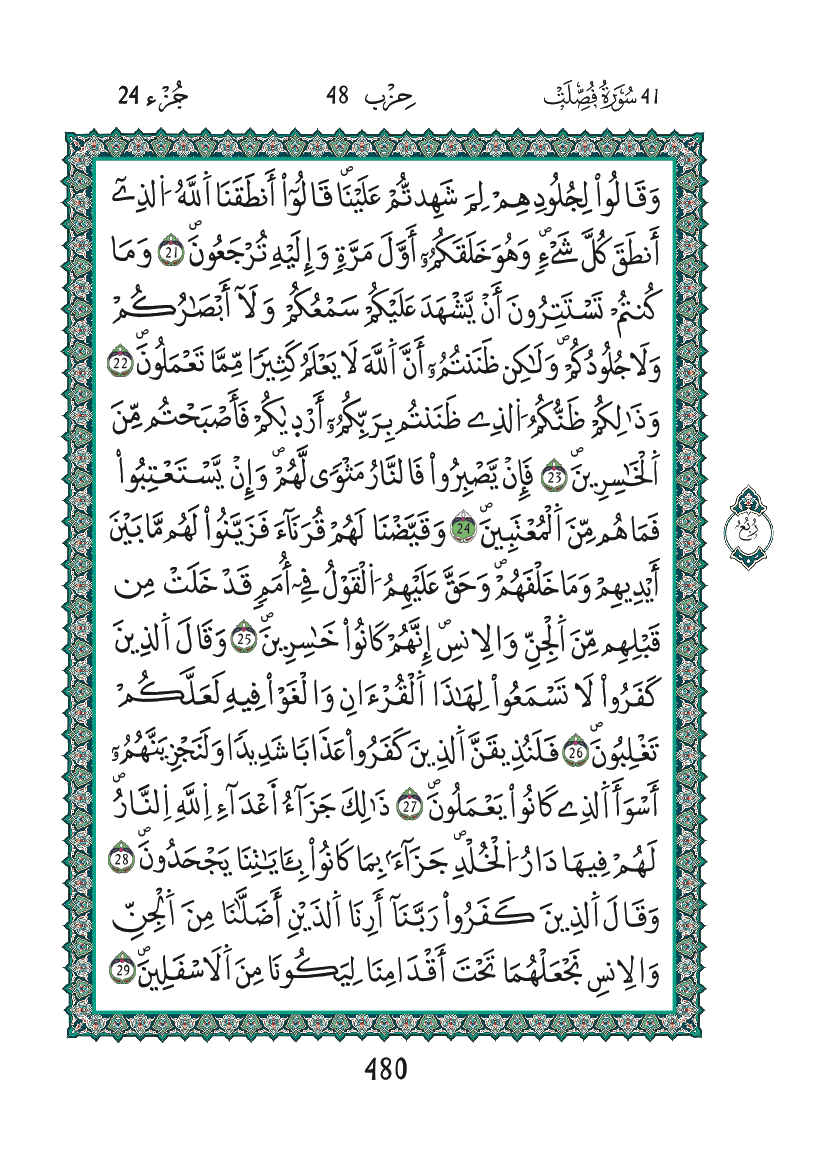 41 سُورَةُ فُصِّلَتْ حِزْب 48 جُزْء 24
وَقَالُواْ لِجُلُودِهِمْ لِمَ شَهِدتُّمْ عَلَيْنَاۖ قَالُوٓاْ أَنطَقَنَا اَ۬للَّهُ اُ۬لذِےٓ
أَنطَقَ كُلَّ شَےْءٖۖ وَهُوَ خَلَقَكُمُۥٓ أَوَّلَ مَرَّةٖ وَإِلَيْهِ تُرْجَعُونَۖ 21 وَمَا
كُنتُمْ تَسْتَتِرُونَ أَنْ يَّشْهَدَ عَلَيْكُمْ سَمْعُكُمْ وَلَآ أَبْصَٰرُكُمْ
وَلَا جُلُودُكُمْۖ وَلَٰكِن ظَنَنتُمُۥٓ أَنَّ اَ۬للَّهَ لَا يَعْلَمُ كَثِيرٗا مِّمَّا تَعْمَلُونَۖ 22
وَذَٰلِكُمْ ظَنُّكُمُ اُ۬لذِے ظَنَنتُم بِرَبِّكُمُۥٓ أَرْدِيٰكُمْ فَأَصْبَحْتُم مِّنَ
اَ۬لْخَٰسِرِينَۖ 23 فَإِنْ يَّصْبِرُواْ فَالنَّارُ مَثْوٗى لَّهُمْۖ وَإِنْ يَّسْتَعْتِبُواْ
فَمَا هُم مِّنَ اَ۬لْمُعْتَبِينَۖ 24 وَقَيَّضْنَا لَهُمْ قُرَنَآءَ فَزَيَّنُواْ لَهُم مَّا بَيْنَ
أَيْدِيهِمْ وَمَا خَلْفَهُمْۖ وَحَقَّ عَلَيْهِمُ اُ۬لْقَوْلُ فِےٓ أُمَمٖ قَدْ خَلَتْ مِن
قَبْلِهِم مِّنَ اَ۬لْجِنِّ وَالِانسِۖ إِنَّهُمْ كَانُواْ خَٰسِرِينَۖ 25 وَقَالَ اَ۬لذِينَ
كَفَرُواْ لَا تَسْمَعُواْ لِهَٰذَا اَ۬لْقُرْءَانِ وَالْغَوْاْ فِيهِ لَعَلَّكُمْ
تَغْلِبُونَۖ 26 فَلَنُذِيقَنَّ اَ۬لذِينَ كَفَرُواْ عَذَابٗا شَدِيدٗا وَلَنَجْزِيَنَّهُمُۥٓ
أَسْوَأَ اَ۬لذِے كَانُواْ يَعْمَلُونَۖ 27 ذَٰلِكَ جَزَآءُ أَعْدَآءِ اِ۬للَّهِ اِ۬لنَّارُۖ
لَهُمْ فِيهَا دَارُ اُ۬لْخُلْدِۖ جَزَآءَۢ بِمَا كَانُواْ بِـَٔايَٰتِنَا يَجْحَدُونَۖ 28
وَقَالَ اَ۬لذِينَ كَفَرُواْ رَبَّنَآ أَرِنَا اَ۬لذَيْنِ أَضَلَّٰنَا مِنَ اَ۬لْجِنِّ
وَالِانسِ نَجْعَلْهُمَا تَحْتَ أَقْدَامِنَا لِيَكُونَا مِنَ اَ۬لَاسْفَلِينَۖ 29
رُبُع
480